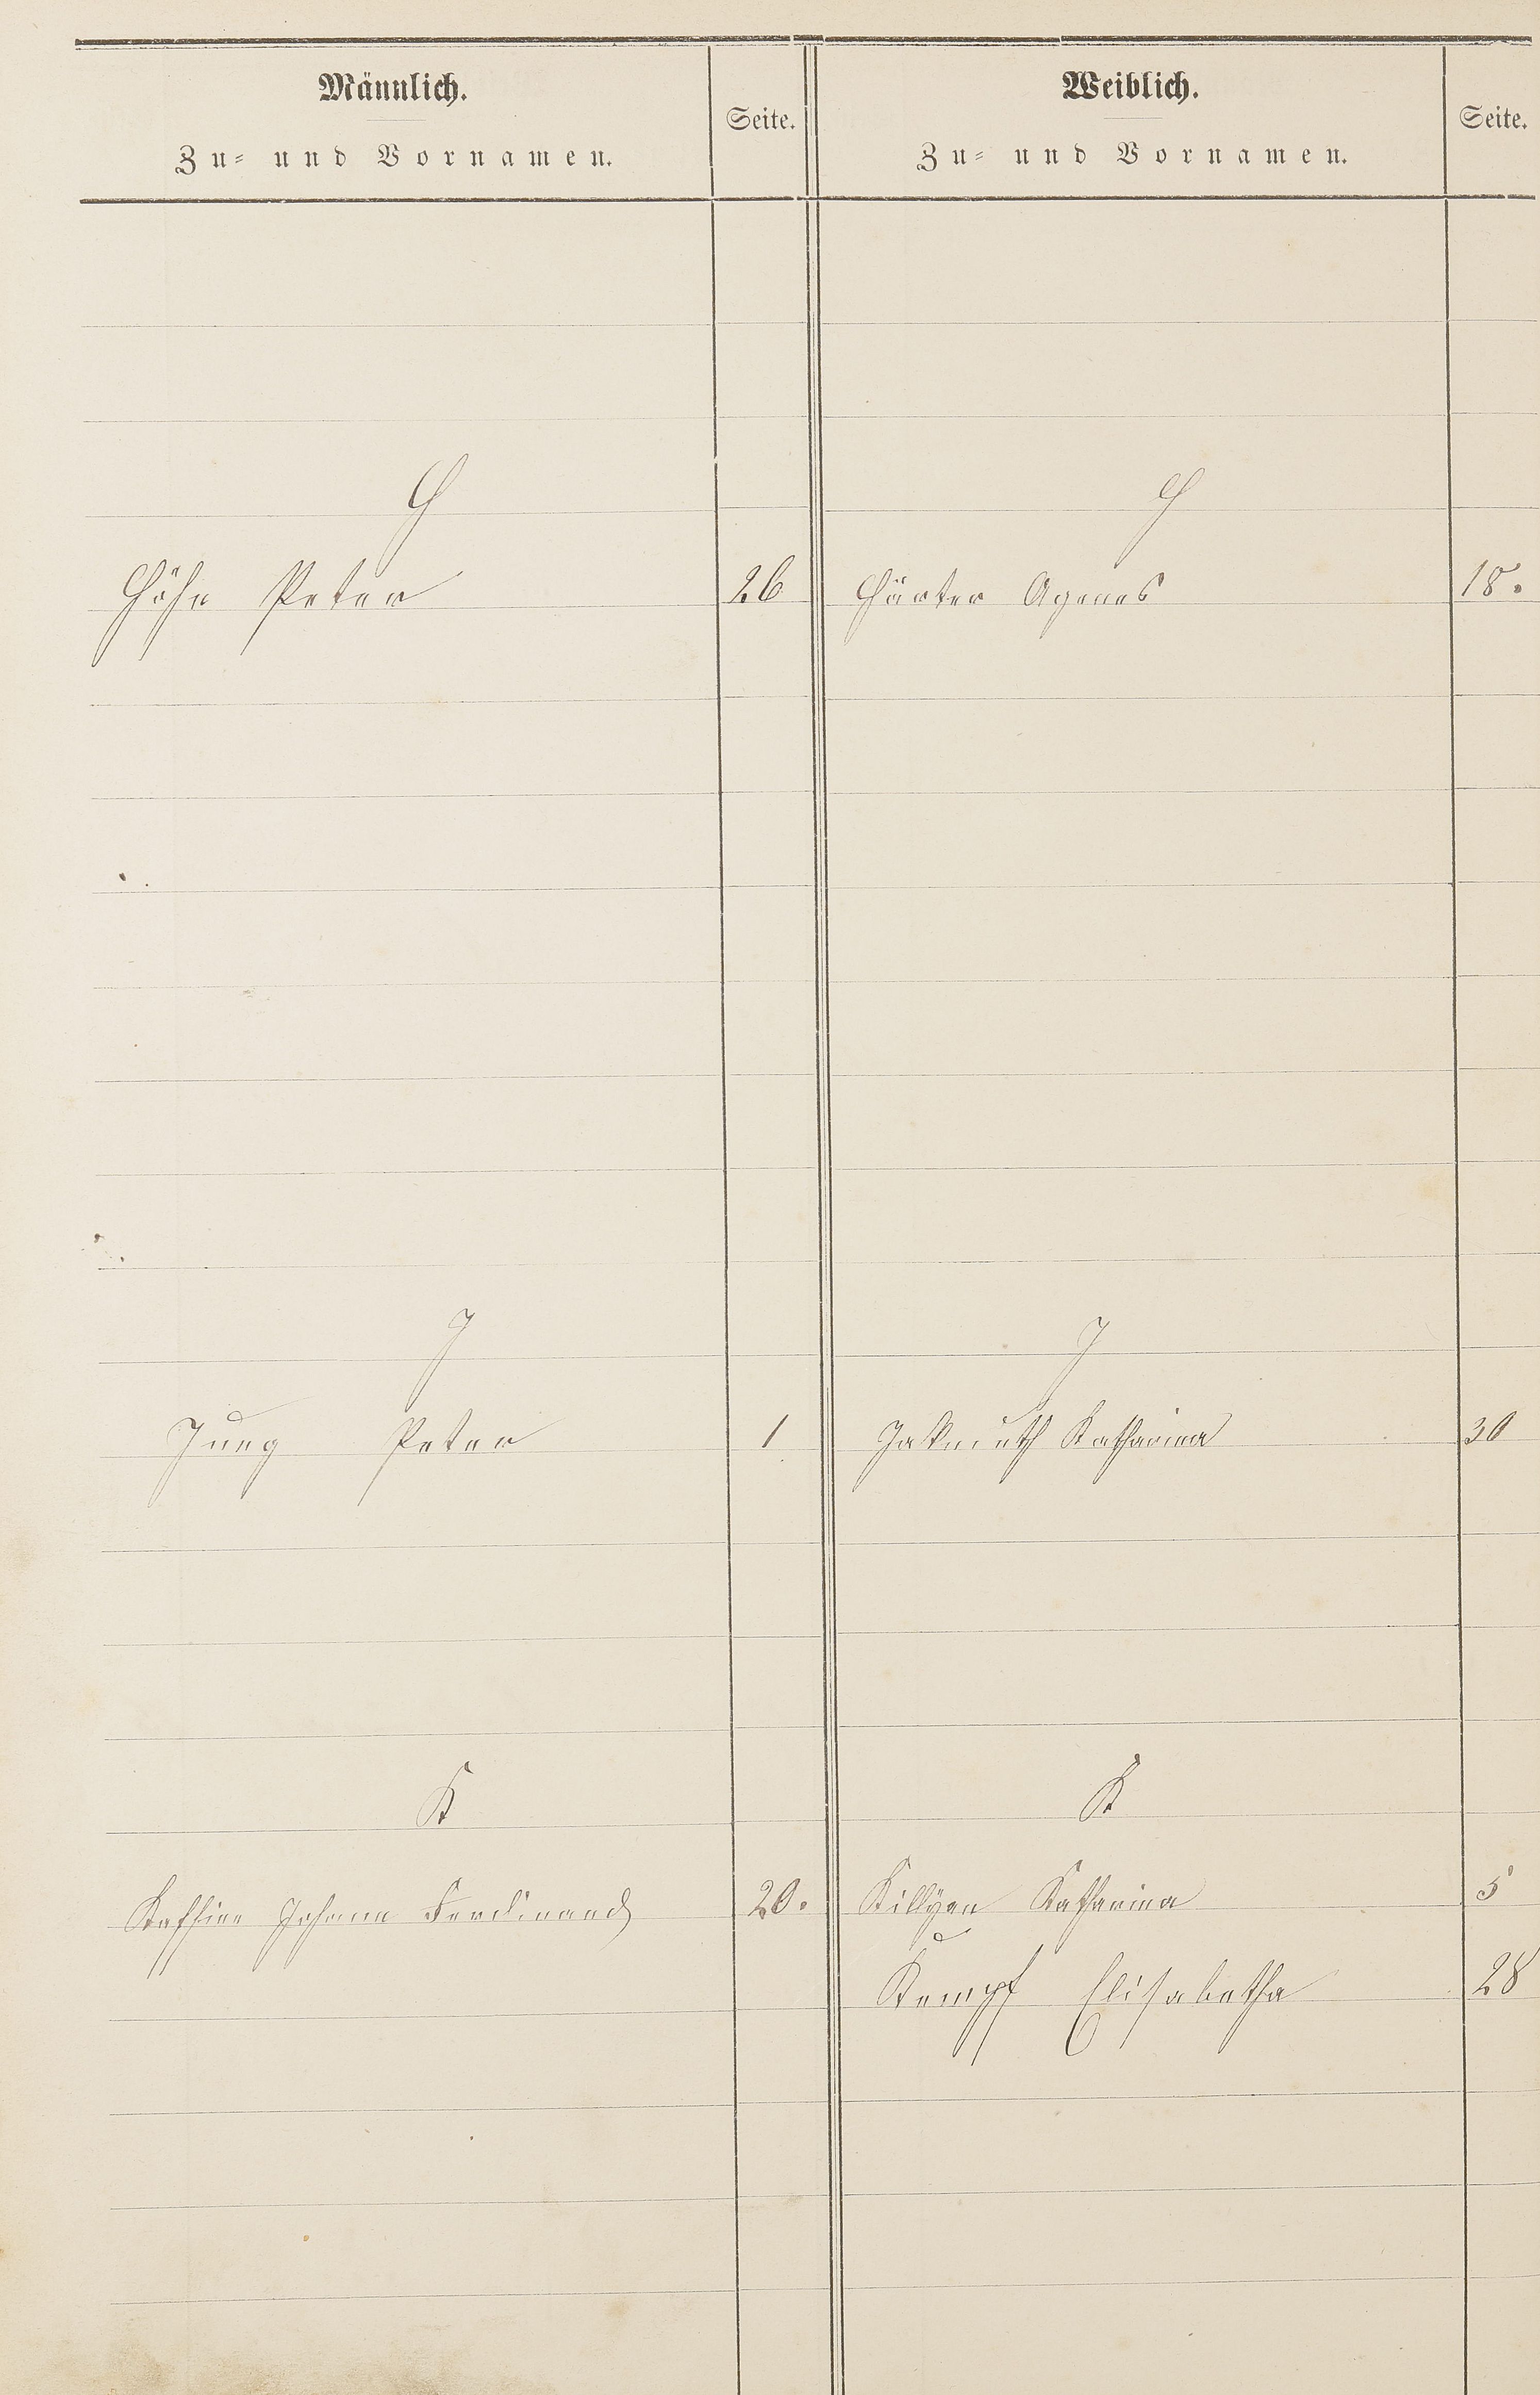 Männlich.
Zu- und Vornamen.
Seite.
Weiblich.
Zu- und Vornamen.
Seite.
H
H
Höhn Peter 26
Härter Agenes 18.
J
J
Jung Peter 1
Jakmuth Katharina 30
K
K
Johann Ferdinand 20.
Killyen Katharina 5
Kempf Elisabetha 28